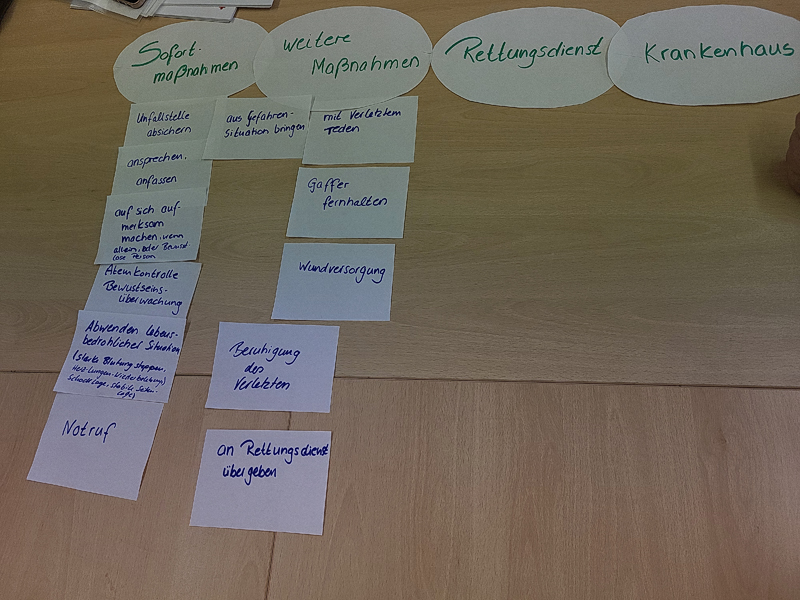 Sofort-
maßnahmen
weitere
Maßnahmen
Rettungsdienst
Krankenhaus
Unfallstelle
absichern
ansprechen,
anfassen
auf sich auf-
merksam
machen, wenn
allein, oder Bewusst
lose Person
Atemkontrolle
Bewustseins-
überwachung
Abwenden lebens-
bedrohlicher Situation
(starke Blutung stoppen,
Herz-Lungen-Wiederbelebung)
Schocklage, stabile Seiten-
lage)
Notruf
aus Gefahren-
Situation bringen
mit Verletztem
reden
Gaffer
fernhalten
Wundversorgung
Beruhigung
des
Verletzten
an Rettungsdienst
übergeben